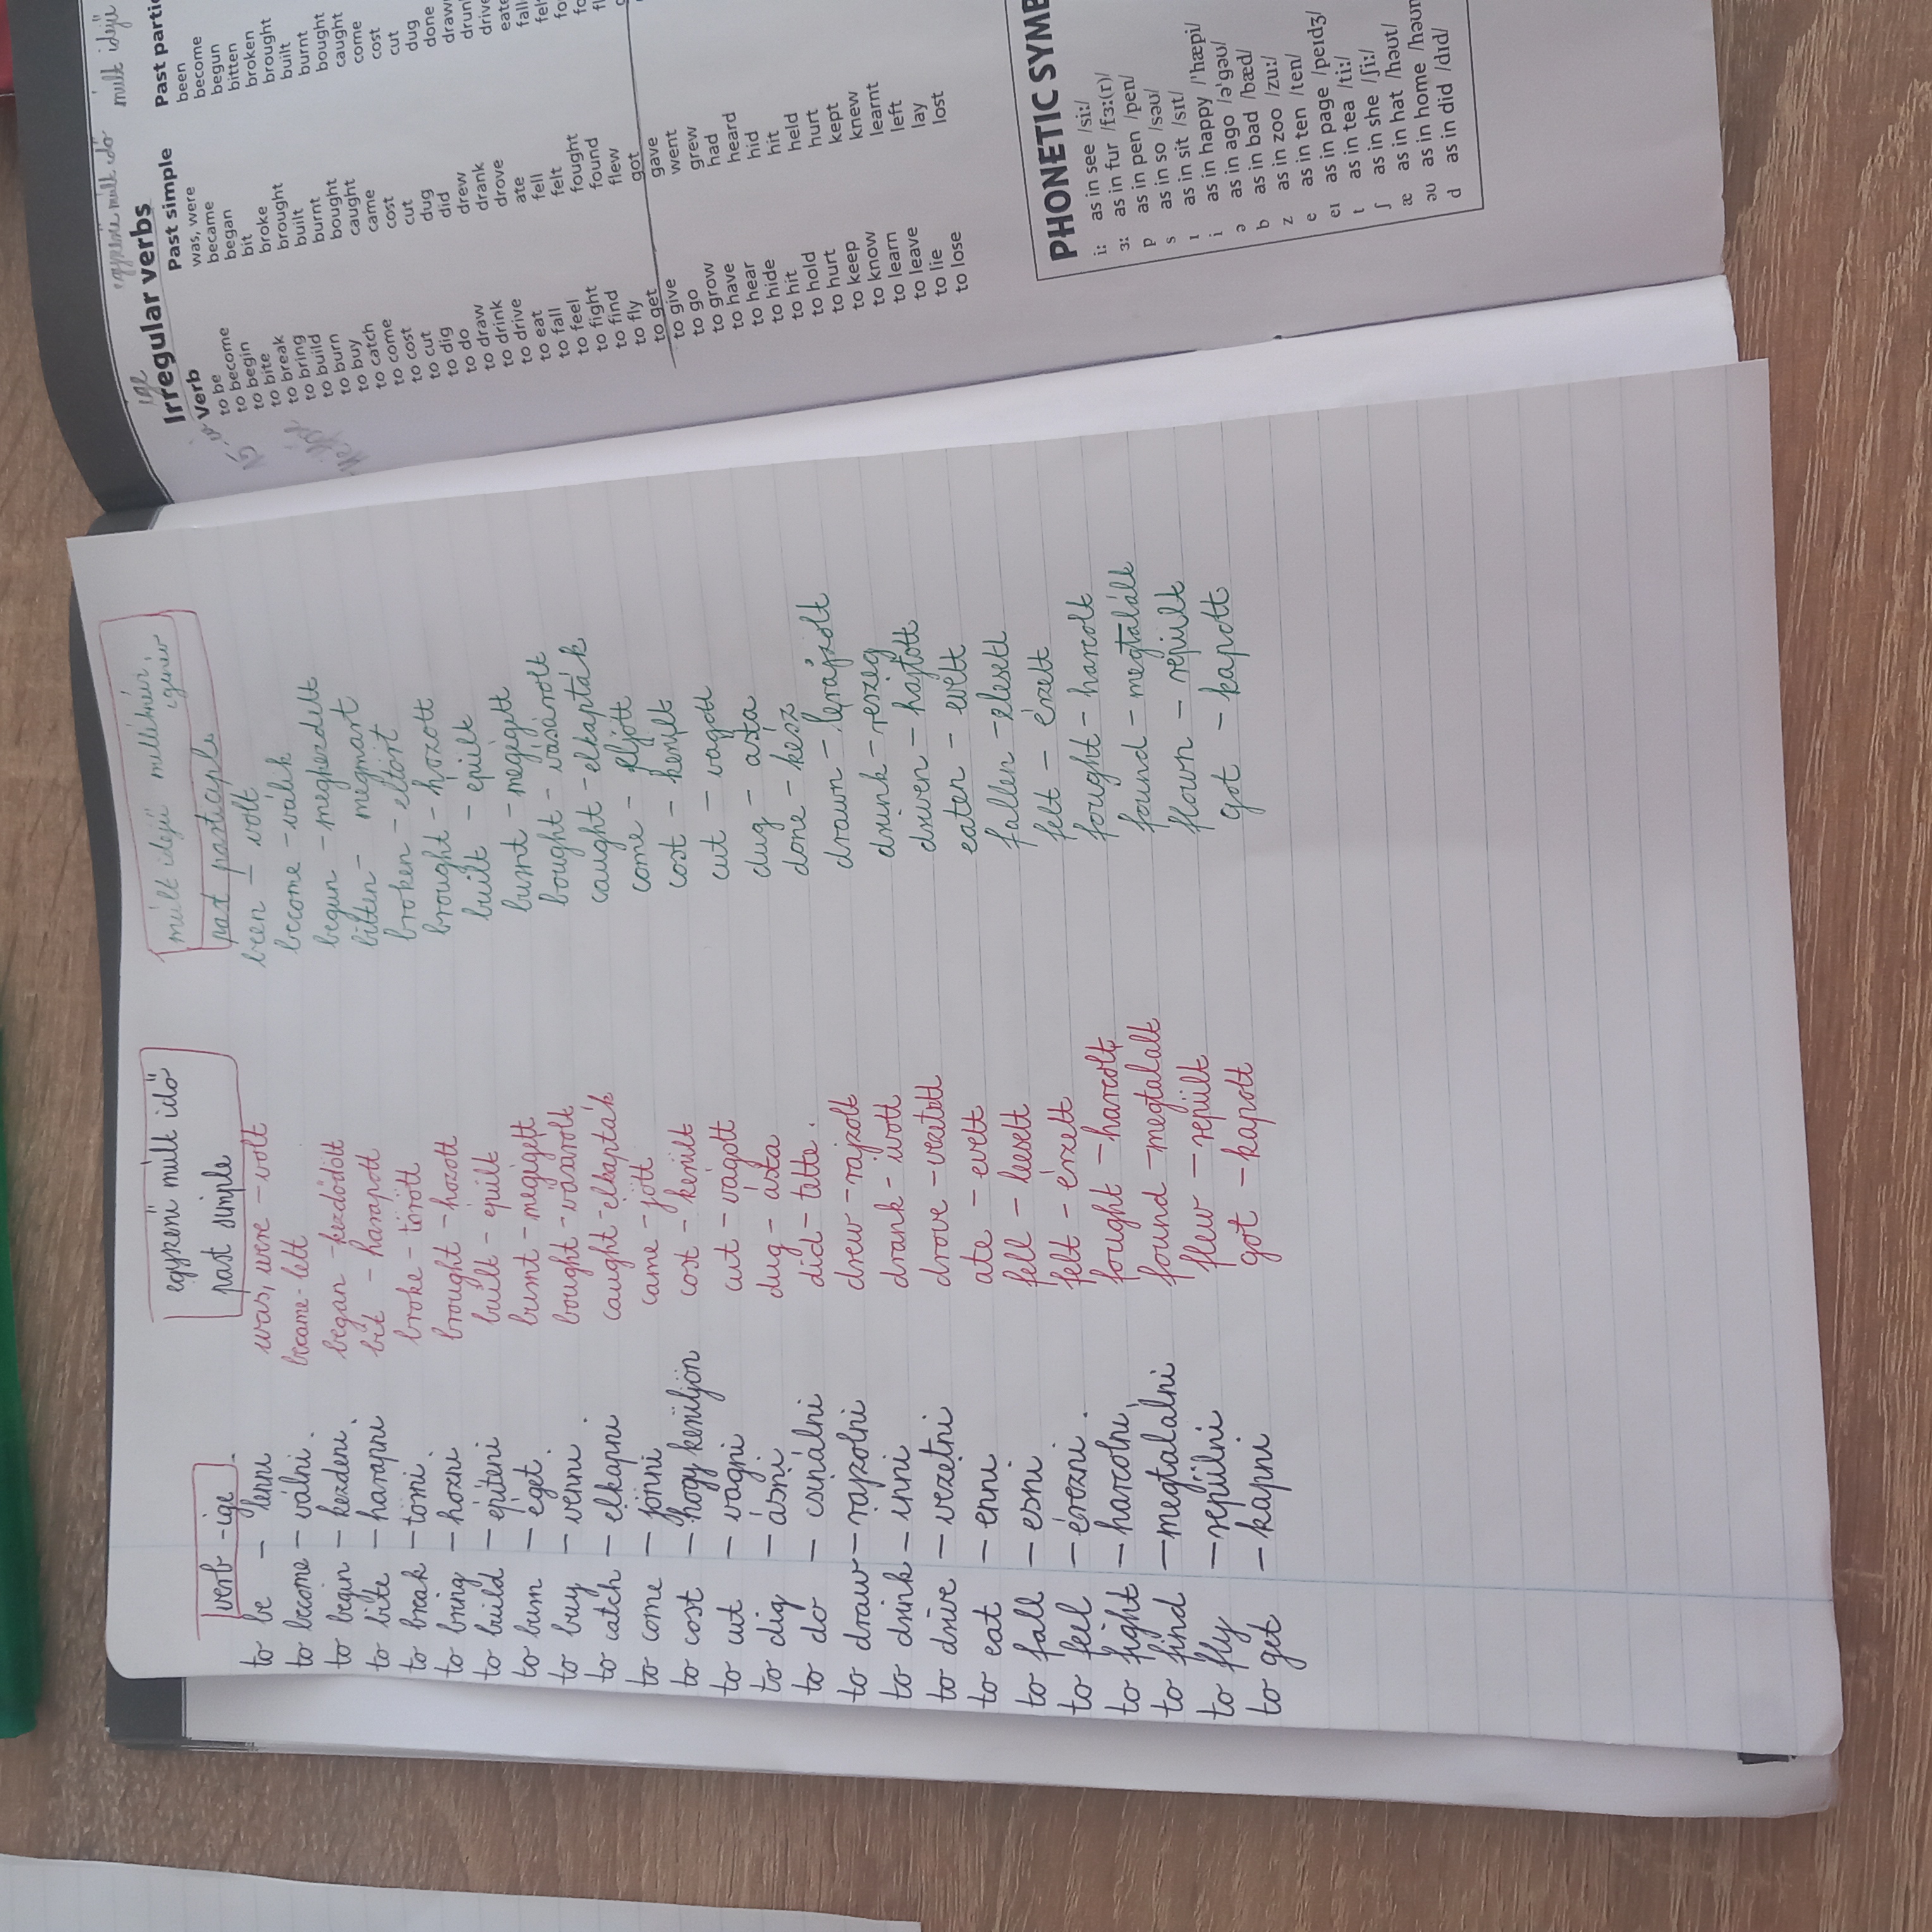 verb - ige
egyszerű múlt idő
past simple
múlt idejű melléknévi
igenév
past participle
to be - lenni was, were - volt been - volt
to become - válni. became - lett become - válik
to begin - kezdeni began - kezdődött begun - meghezdett
to bite - harapni bit - harapott bitten - megmart
to break - törni. broke - törött broken - eltört
to bring - hozni brought - hozott brought - hozott
to build - építeni built - épült built - épült
to burn - éget. burnt - megégett burnt - megégett
to buy - venni. bought - vásárolt bought - vásárolt
to catch - elkapni caught - elkapták caught - elkapták
to come - jönni came - jött come - eljött
to cost - hogy kerüljön cost - került cost - került
to cut - vágni cut - vágott cut - vagott
to dig - ásni dug - ásta dug - asta
to do - csinálni did - tette. done - kész
to draw - rajzolni drew - rajzolt drawn - lerajzolt
to drink - inni drank - ivott drunk - reszeg
to drive - vezetni drove - vezetett driven - hajtott
to eat - enni ate - evett eaten - evett
to fall - esni fell - leesett fallen - elesett
to feel - érezni. felt - érzett felt - érzett
to fight - harcolni fought - harcolt fought - harcolt
to find - megtalálni found - megtalalt found - megtalált
to fly - repülni flew - repült flown - repült
to get - kapni got - kapott got - kapott
ige egyszerű múlt idő múlt idejű
Irregular verbs
Verb Past simple Past partic
to be was, were been
to become became become
to begin began begun
to bite bit bitten
to break broke broken
to bring brought brought
to build built built
to burn burnt burnt
to buy bought bought
to catch caught caught
to come came come
to cost cost cost
to cut cut cut
to dig dug dug
to do did done
to draw drew draw
to drink drank drun
to drive drove drive
to eat ate eate
to fall fell fall
to feel felt fel
to fight fought fo
to find found fo
to fly flew fl
to get got
to give gave
to go went
to grow grew
to have had
to hear heard
to hide hid
to hit hit
to hold held
to hurt hurt
to keep kept
to know knew
to learn learnt
to leave left
to lie lay
to lose lost
PHONETIC SYMB
iː as in see /siː/
ɜː as in fur /fɜː(r)/
p as in pen /pen/
s as in so /səʊ/
ɪ as in sit /sɪt/
i as in happy /ˈhæpi/
ə as in ago /əˈgəʊ/
b as in bad /bæd/
z as in zoo /zuː/
e as in ten /ten/
eɪ as in page /peɪdʒ/
t as in tea /tiː/
ʃ as in she /ʃiː/
æ as in hat /həʊt/
əʊ as in home /həʊm
d as in did /dɪd/